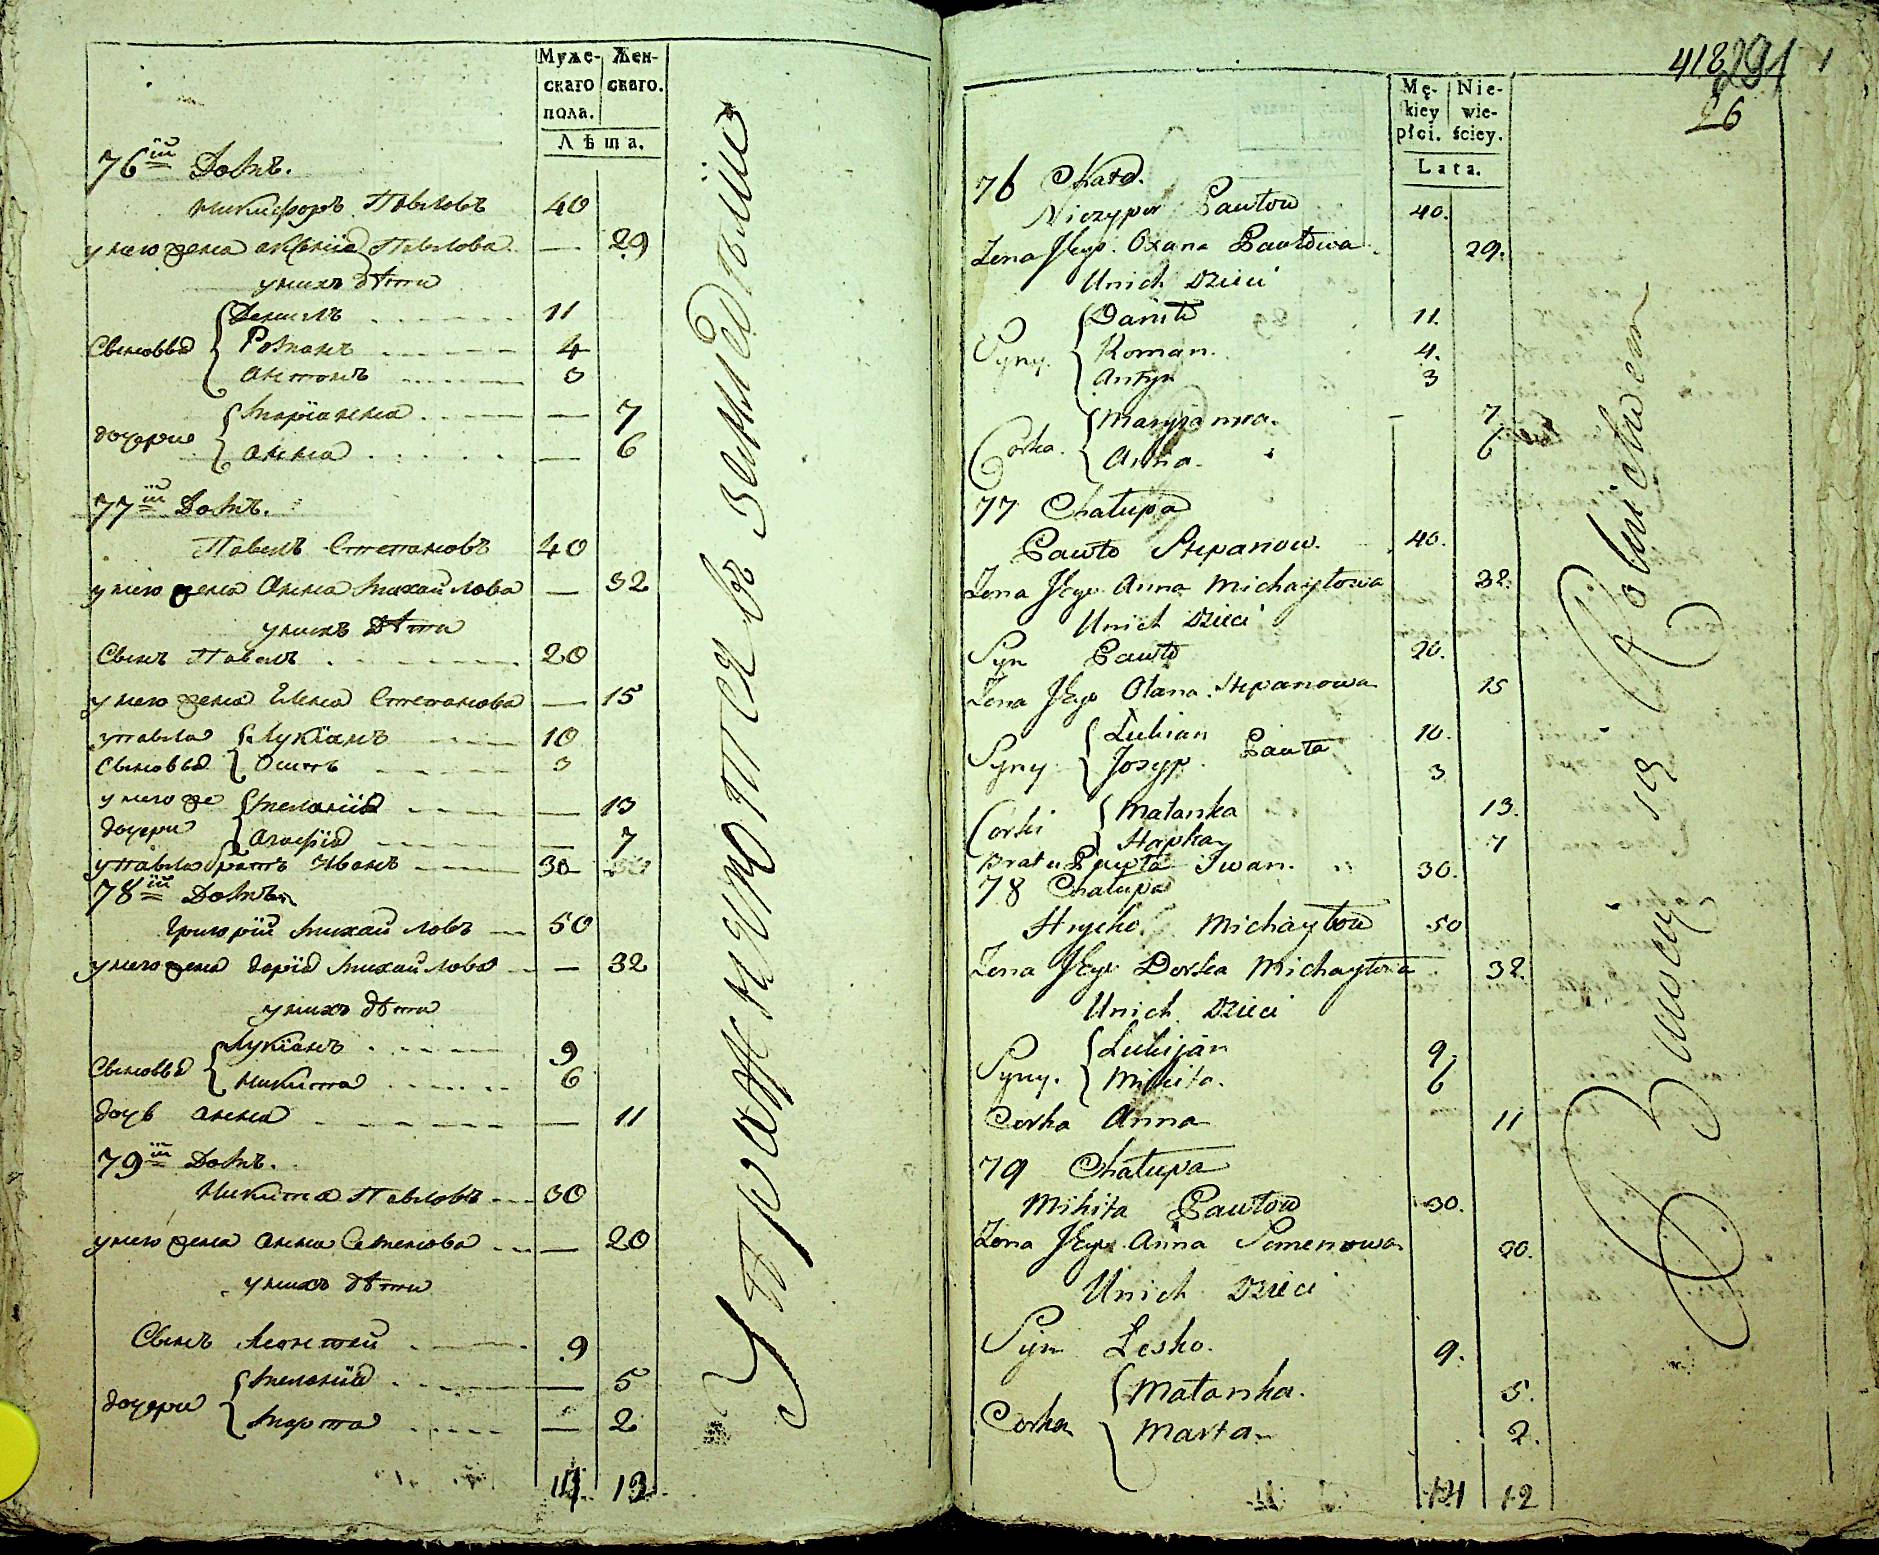 Муже-
скаго
пола.
Жен-
скаго.
Лѣта.
76ій Домъ.
Никифоръ Павловъ 40
у него жена Аксенія Павлова — 29
у нихъ дѣти
Сыновья
Данилъ 11
Романъ 4
Антонъ 3
дочери
Маріанна — 7
Анна — 6
77ій Домъ.
Павелъ Степановъ 40
у него жена Анна Михайлова — 32
у нихъ дѣти
Сынъ Павелъ 20
у него жена Елена Степанова — 15
у Павла
Сыновья
Лукіанъ 10
Осипъ 3
у него же
дочери
Меланія — 13
Агафія — 7
у Павла братъ Иванъ 30
78ій Домъ
Григорій Михайловъ 50
у него жена Дарія Михайлова — 32
у нихъ дѣти
Сыновья
Лукіанъ 9
Никита 6
дочь Анна — 11
79ій Домъ.
Никита Павловъ 30
у него жена Анна Семенова — 20
у нихъ дѣти
Сынъ Леонтей 9
дочери
Меланія — 5
Марта — 2
14 12
Упражняются въ земледѣліи
418 291
26
Mę-
kiey
płci.
Nie-
wie-
ściey.
Lata.
76 Chata.
Niczypor Pawłow 40.
Zona Jego Oxana Pawłowa 29.
Unich Dzieci
Syny
Daniło 11.
Roman. 4.
Antyn 3
Corka.
Maryanna. — 7
Anna. 6
77 Chałupa
Pawło Stepanow. 40.
Zona Jego Anna Michayłowa 32.
Unich Dzieci
Syn Pawło 20.
Zona Jego Olana Stepanowa 15
Syny Pawła
Lukian 10.
Josyp 3
Corki
Małanka 13.
Hapka 7
Brat u Pawła Iwan. 30.
78 Chałupa
Hrycko Michayłow 50
Zona Jego Dorka Michayłowa 32.
Unich Dzieci
Syny.
Lukijan 9.
Mikita. 6
Corka Anna 11
79 Chałupa
Mikita Pawłow 30.
Zona Jego Anna Semenowa 20.
Unich Dzieci
Syn Lesko. 9.
Corka
Małanka. 5.
Marta. 2.
14 12
Bawią się Rolnictwem